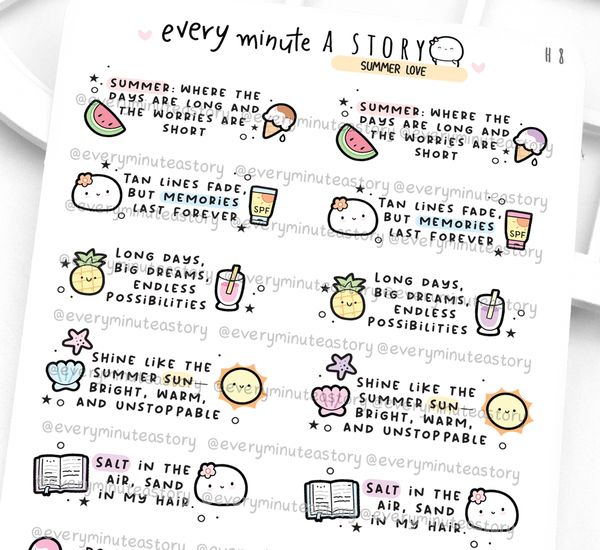 every minute A STORY
SUMMER LOVE
H 8
SUMMER: WHERE THE
DAYS ARE LONG AND
THE WORRIES ARE
SHORT
SUMMER: WHERE THE
DAYS ARE LONG AND
THE WORRIES ARE
SHORT
@everyminuteastory @everyminuteastory @everyminuteastory
TAN LINES FADE,
BUT MEMORIES
LAST FOREVER
SPF
TAN LINES FADE,
BUT MEMORIES
LAST FOREVER
SPF
LONG DAYS,
BIG DREAMS,
ENDLESS
POSSIBILITIES
LONG DAYS,
BIG DREAMS,
ENDLESS
POSSIBILITIES
@everyminuteastory @everyminuteastory @everyminuteastory
SHINE LIKE THE
SUMMER SUN
BRIGHT, WARM,
AND UNSTOPPABLE
SHINE LIKE THE
SUMMER SUN
BRIGHT, WARM,
AND UNSTOPPABLE
@everyminuteastory @everyminuteastory @everyminuteastory
SALT IN THE
AIR, SAND
IN MY HAIR.
SALT IN THE
AIR, SAND
IN MY HAIR.